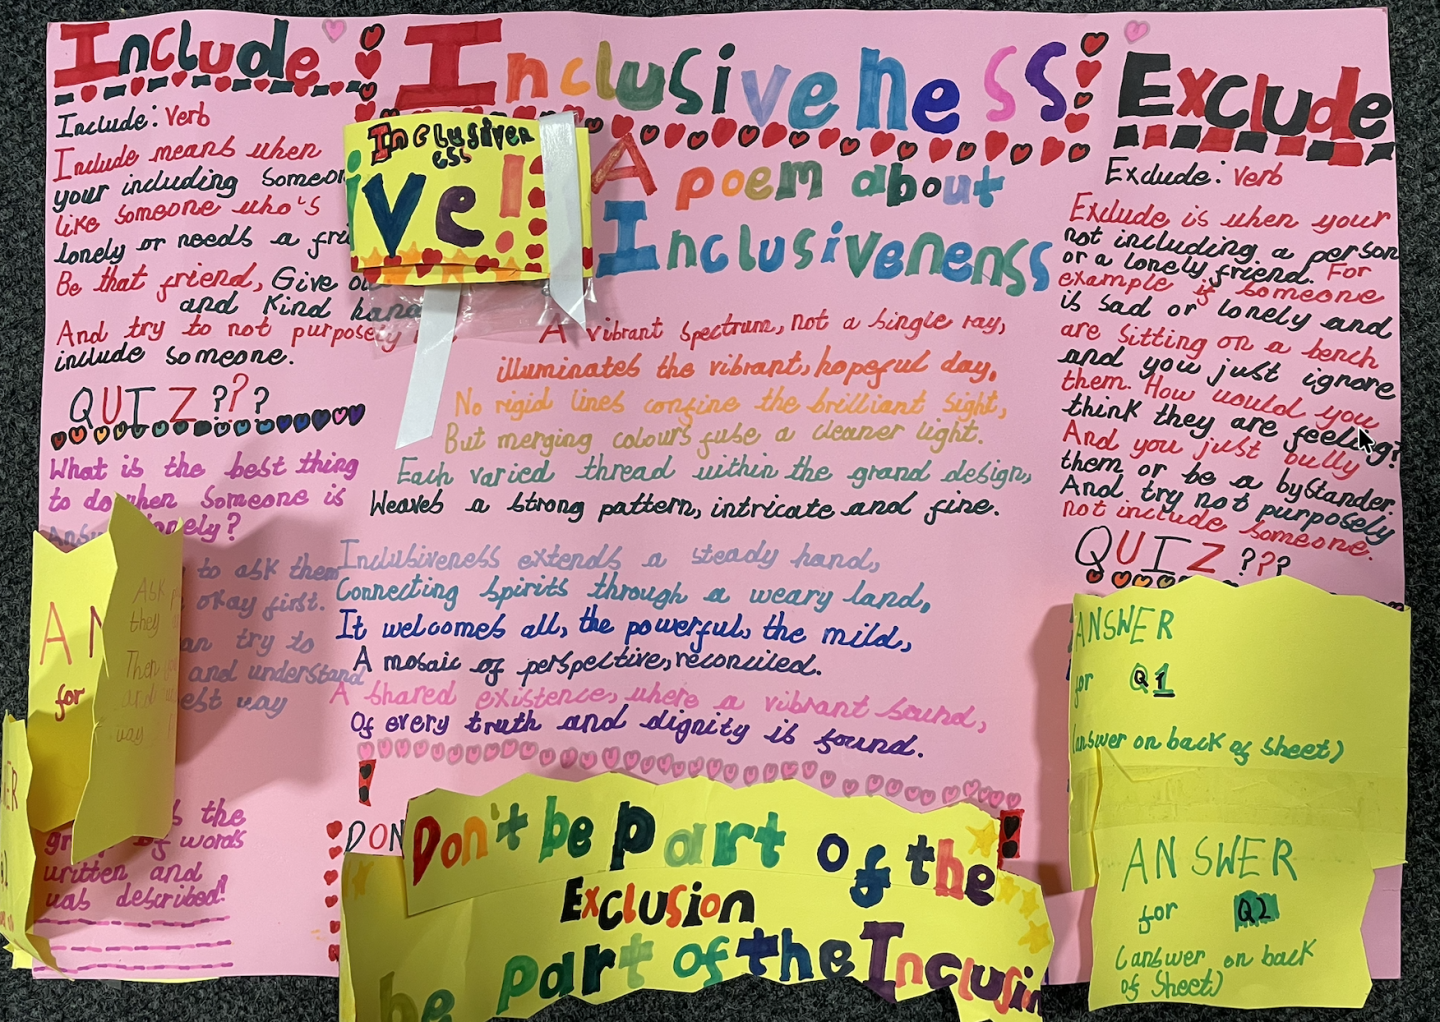 Include
Include: Verb
Include means when
your including someon
like someone who's
lonely or needs a frie
Be that friend, Give
and Kind hand
And try to not purposely
include someone.
QUIZ ???
What is the best thing
to do when someone is
lonely?
to ask them
okay first.
an try to
and understand
est way
AN
for
Ask
they
Then
and
way
ER
the
of words
written and
was described!
Inclusiveness
Inclusiven
ess
ive!
A poem about
Inclusivenenss
A vibrant spectrum, not a single ray,
illuminates the vibrant, hopeful day.
No rigid lines confine the brilliant sight,
But merging colours fuse a cleaner light.
Each varied thread within the grand design,
Weaves a strong pattern, intricate and fine.
Inclusiveness extends a steady hand,
Connecting spirits through a weary land,
It welcomes all, the powerful, the mild,
A mosaic of perspective, reconciled.
A shared existence, where a vibrant sound,
Of every truth and dignity is found.
!
DON
Don't be part of the !
Exclusion
be part of the Inclusion
Exclude
Exclude: verb
Exclude is when your
not including a person
or a lonely friend. For
example if someone
is sad or lonely and
are sitting on a bench
and you just ignore
them. How would you
think they are feeling?
And you just bully
them or be a bystander.
And try not purposely
not include someone.
QUIZ ???
ANSWER
for Q1
(answer on back of sheet)
ANSWER
for Q2
(answer on back
of sheet)